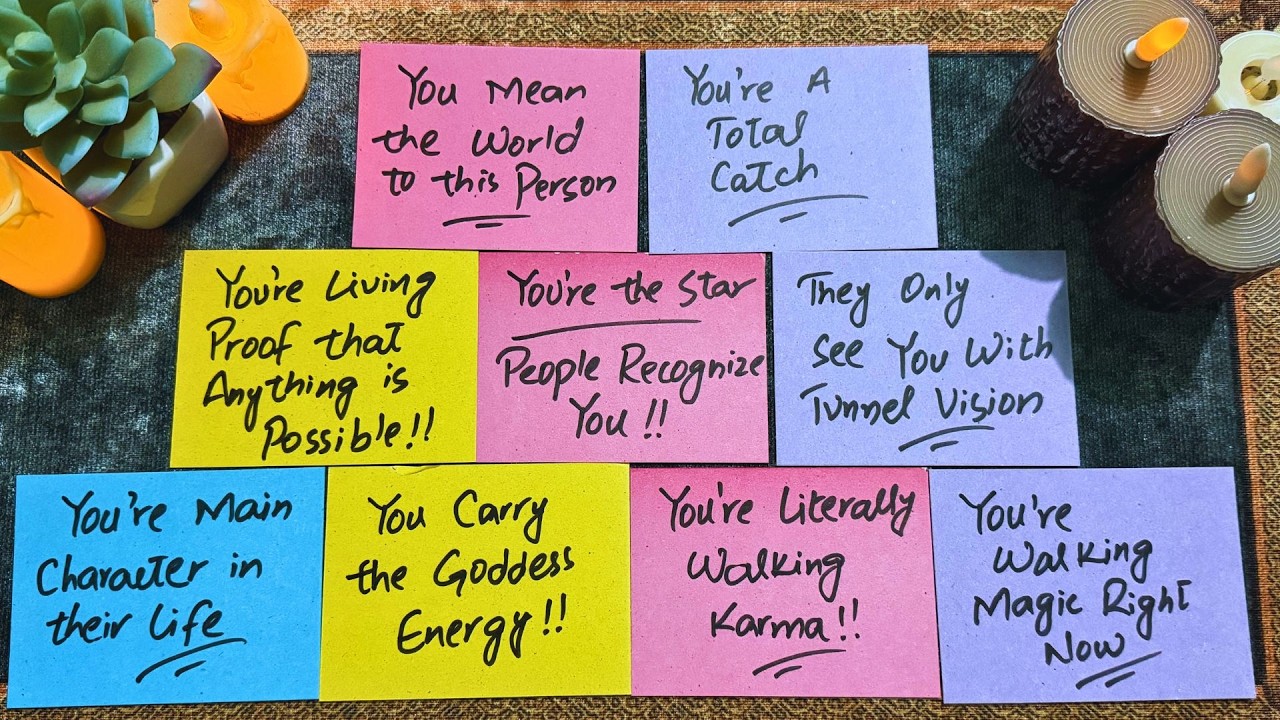 You Mean
the World
to this Person
You're A
Total
Catch
You're Living
Proof that
Anything is
Possible!!
You're the Star
People Recognize
You!!
They Only
See You With
Tunnel Vision
You're Main
Character in
their Life
You Carry
the Goddess
Energy!!
You're Literally
Walking
Karma!!
You're
Walking
Magic Right
Now